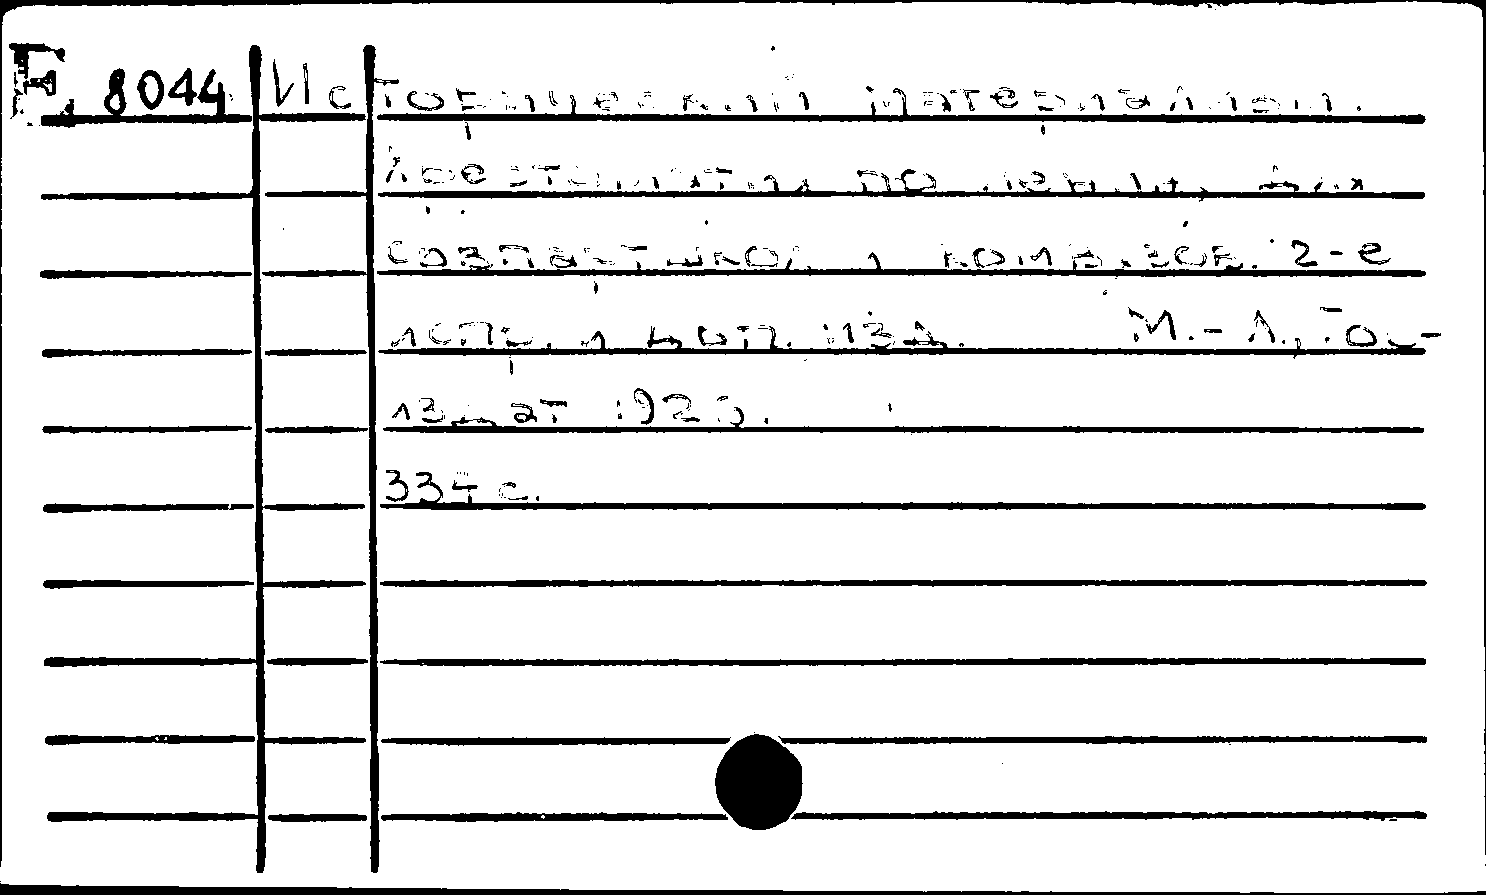 E. 8044 Исторический материализм.
Хрестоматия по лен-му, для
совпартшкол и комвузов. 2-е
испр. и доп. изд. М.-Л., Гос-
издат
334 с.